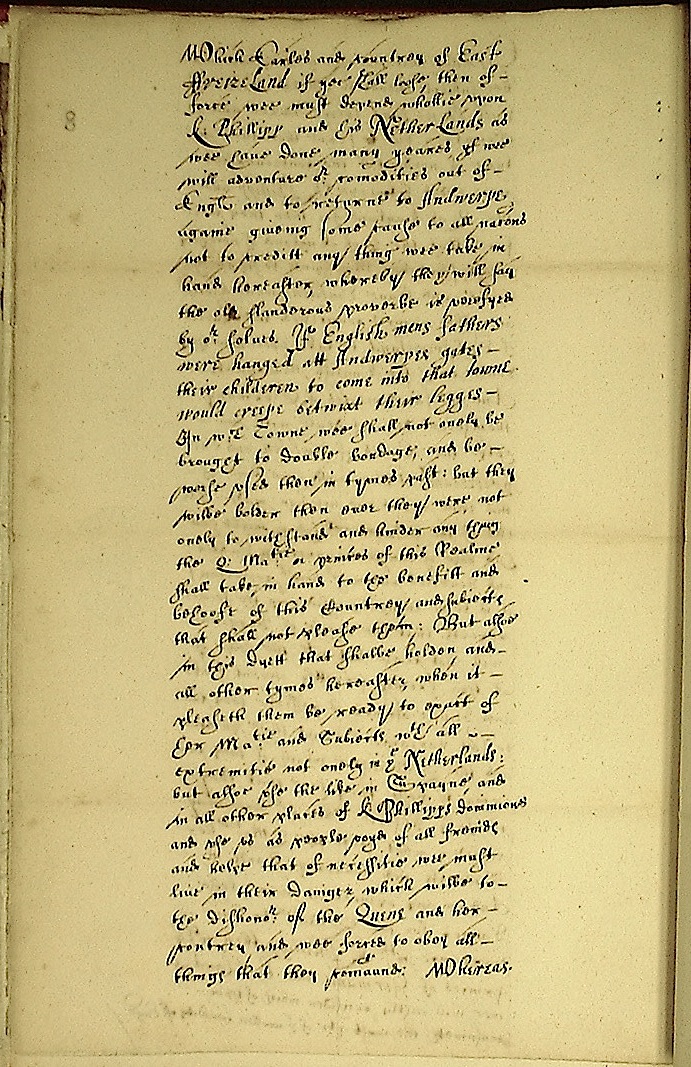 8
Which Earles and countrey of East
ffreizeLand if yee shall lose, then of
force wee must depend whollie vpon
K: Phillipp and his NetherLands as
wee haue done many yeares yf wee
will adventure or comodities out of
Engld and to returne to Andwerpe,
againe giveing some cause to all nacōns
not to creditt any thing wee take in
hand hereafter, whereby they will say
the old slanderous proverbe is verefyed
by or selues. If English mens fathers
were hanged att Andwerpes gates
their childeren to come into that towne
would creepe betwixt their legges
In wch Towne wee shall not onely be
brought to double bondage, and be
worse vsed then in tymes past: but they
wilbe bolder then euer they were not
onely to withstand and hinder any thing
the Q: Matie or princes of this Realme
shall take in hand to the benefitt and
behoofe of this Countrey and subiects
that shall not please them: But alsoe
in this dyett that shalbe holden and
all other tymes hereafter, when it
pleaseth them be ready to exact of
her Matie and Subiects wth all
extremitie not onely in ye Netherlands:
but alsoe vse the like in Spayne and
in all other places of K Phillipps dominions
and vse vs as people voyd of all freinds
and helpe that of necessitie wee must
liue in their daunger which wilbe to
the dishonor of the Quene and her
countrey and wee forced to obey all
things that they comaund: Whereas.